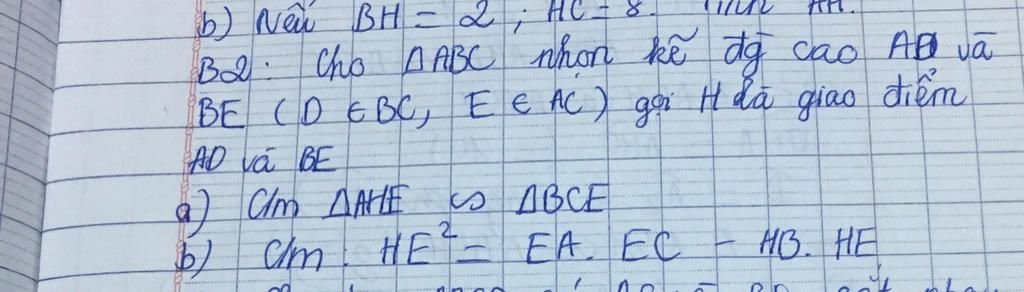 b) Nếu BH = 2 ; HC = 8. Tính AH.
B2: Cho ΔABC nhọn kẽ đg cao AD và
BE (D ∈ BC, E ∈ AC) gọi H là giao điểm
AD và BE
a) C/m ΔAHE ∽ ΔBCE
b) C/m : HE² = EA. EC - HB. HE